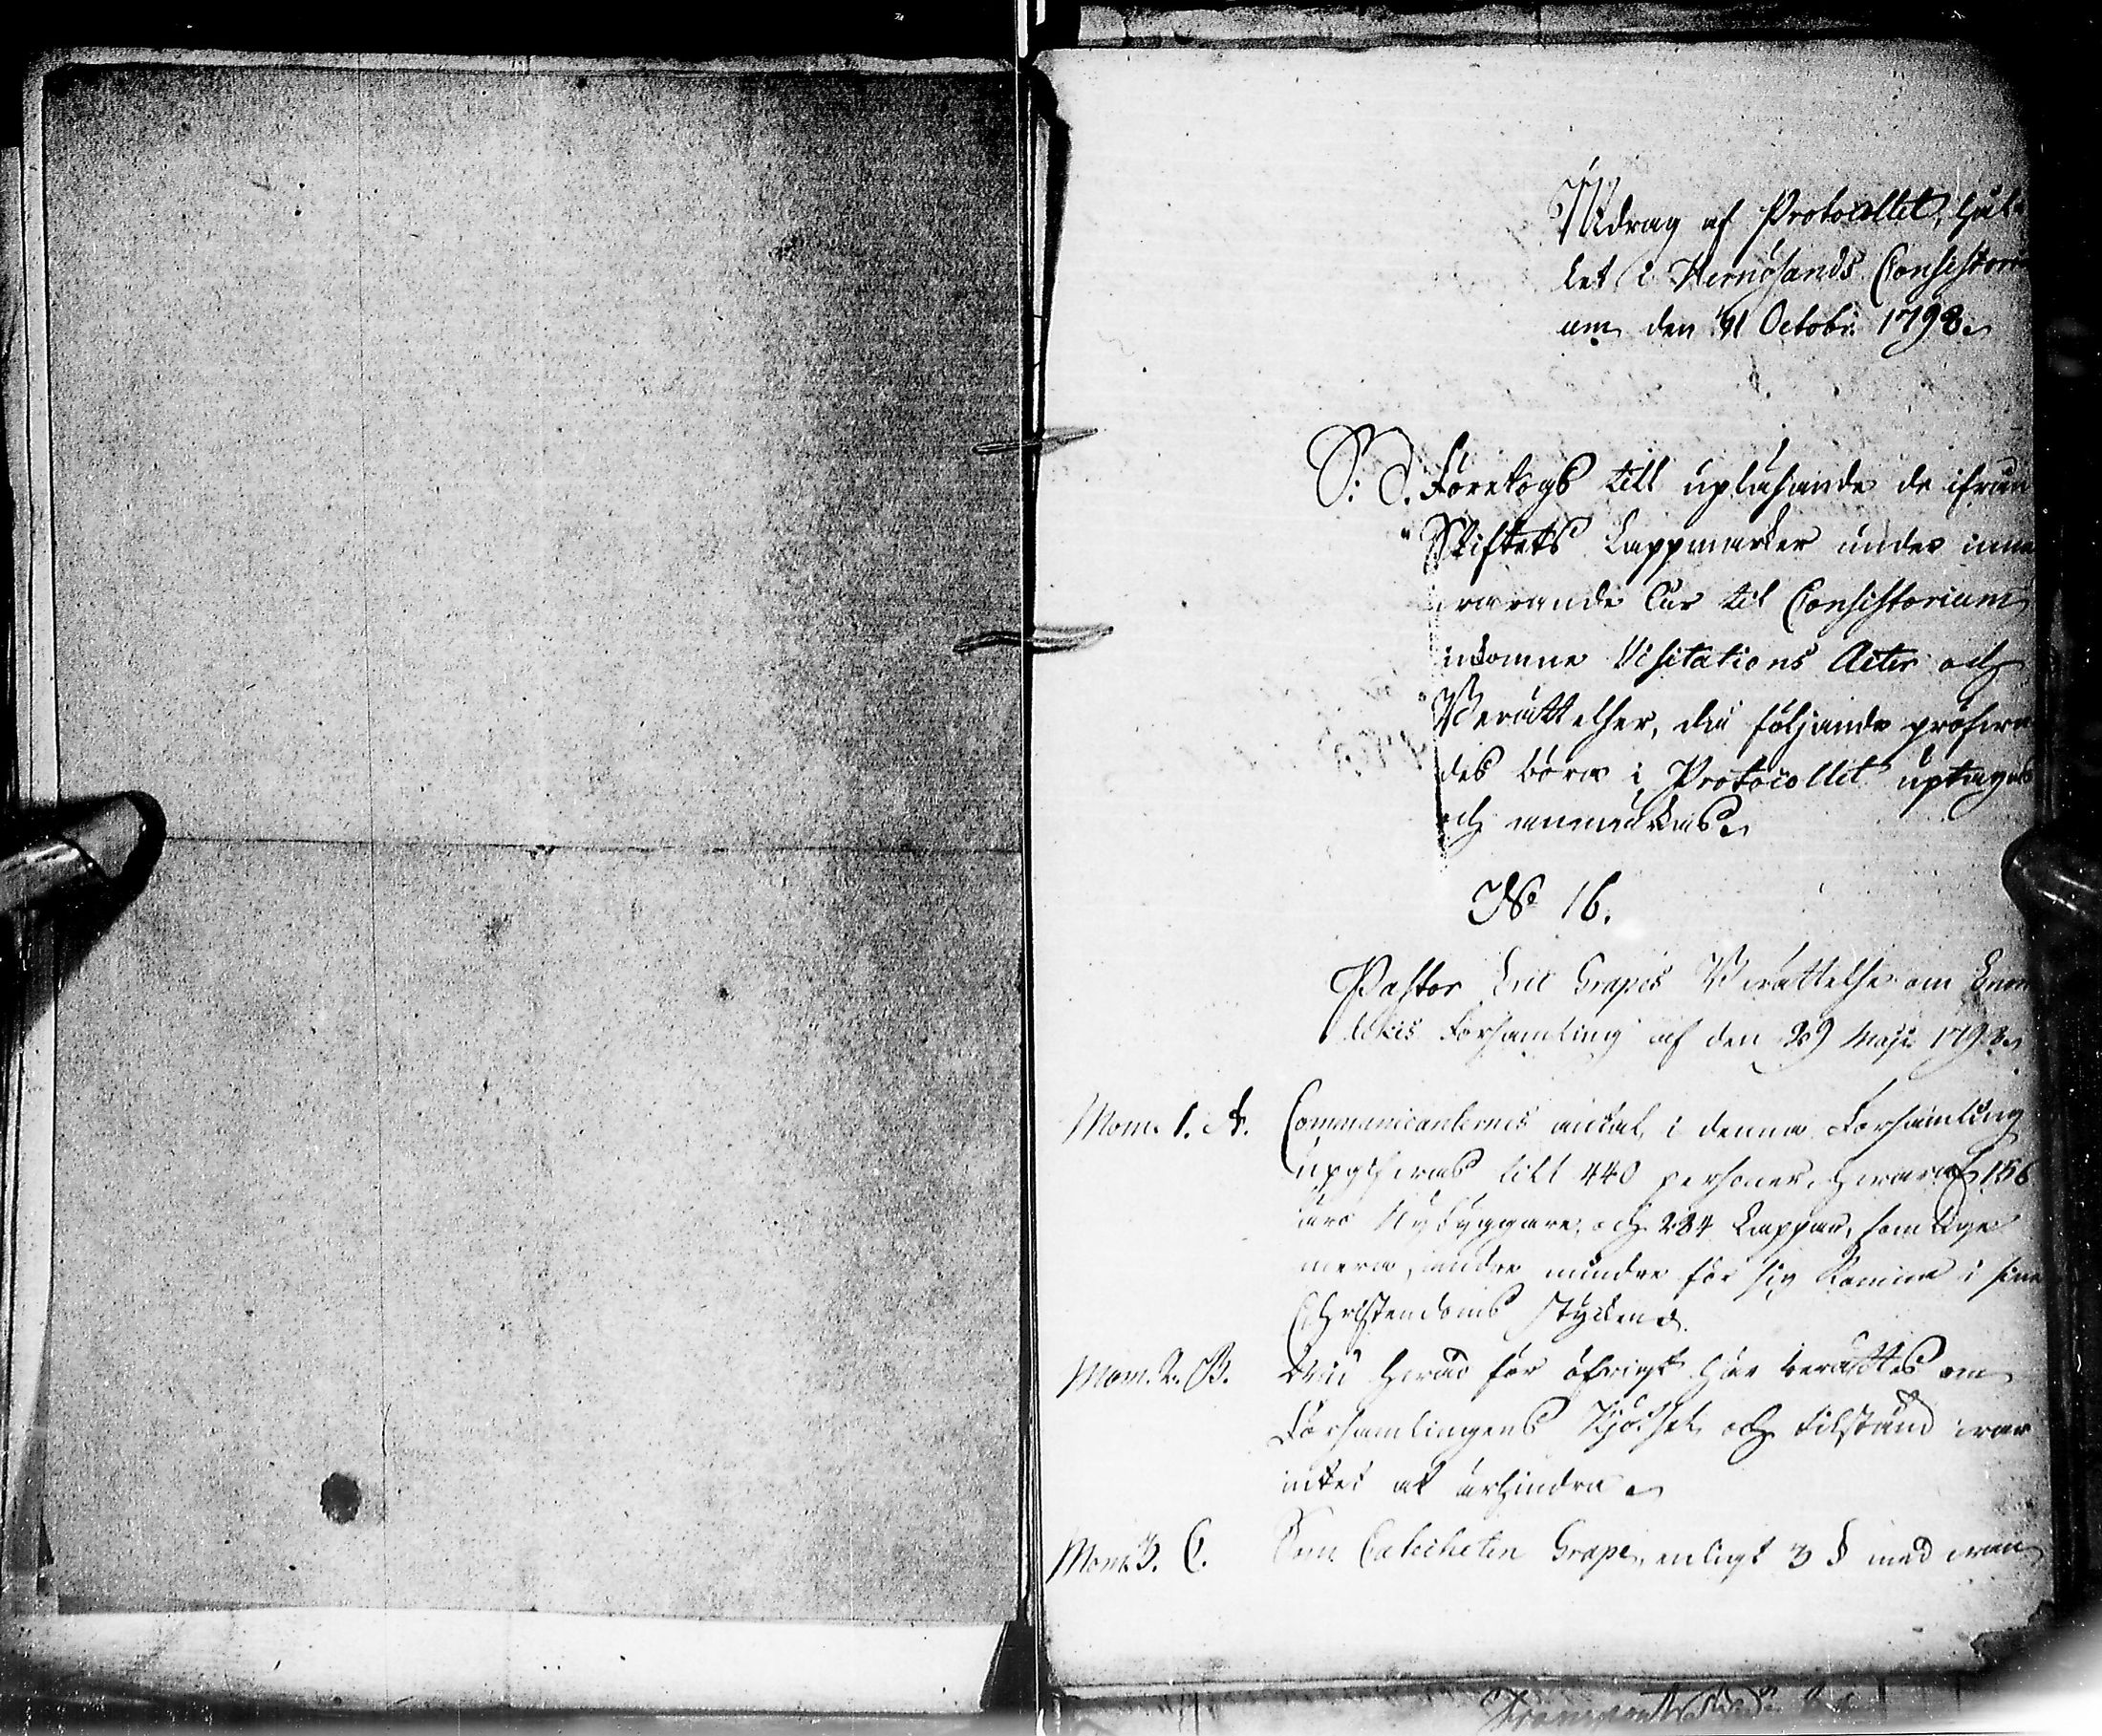 Utdrag af Protocollet, hål-
let i Hernösands Consistori
um den 31 Octobr. 1798.
S. D. Företogs till uplåsande de ifrån
Stiftets Lappmarker under inne
warande år til Consistorium
inkomne Visitations Acter och
Berättelser, då följande pröfwa
des böra i Protocollet uptagas
och anmärkas.
No 16.
Pastor Eric Grapes Berättelse om Enon
tekis Församling af den 29 Maji 1798.
Mom. 1. A. Communicanternes antal i denna Församling
upgifwas till 440 personer, hwaraf 156
äro Nybyggare, och 284 Lappar, somlige
mera, andre mindre för sig komne i sina
Christendoms stycken.
Mom. 2. B. Wid hwad för öfrigt här berättes om
Församlingens skjötsel och tilstånd war
intet at ärhindra.
Mom. 3. C. Som Catecheten Grape, enligt 3 § med wan